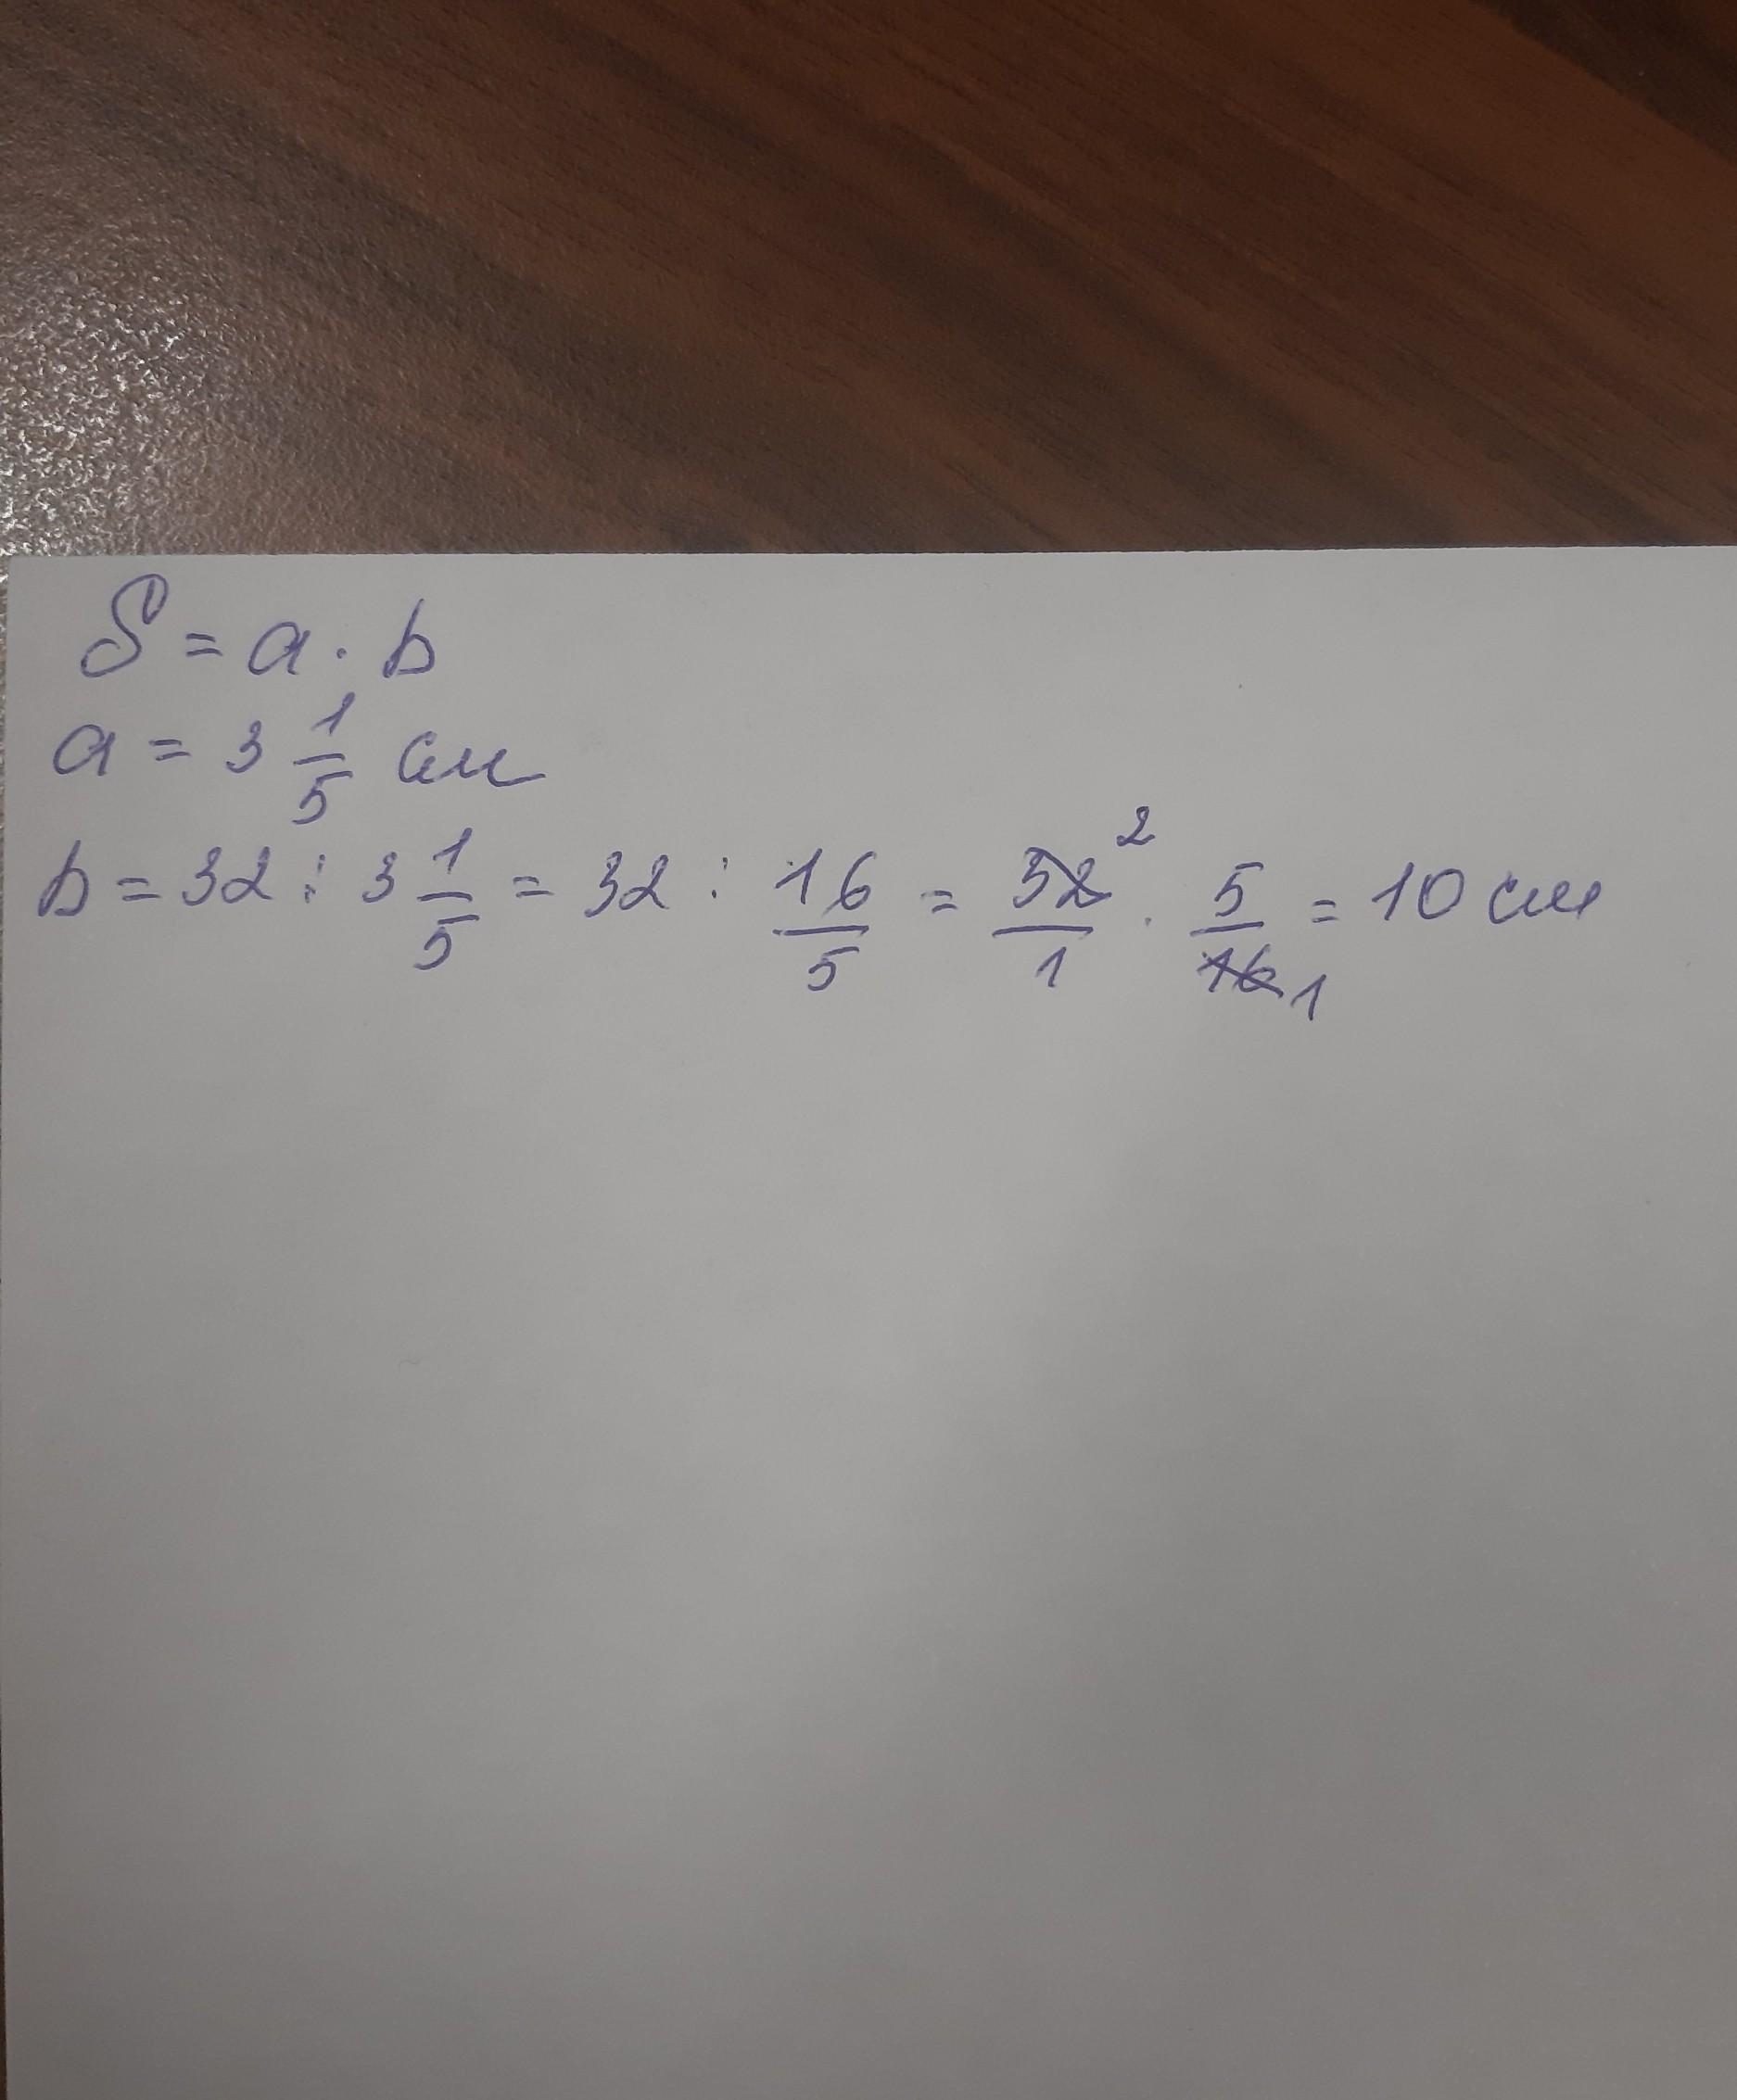 S = a · b
a = 3 1/5 см
b = 32 : 3 1/5 = 32 : 16/5 = 32 2/1 · 5/16 1 = 10 см